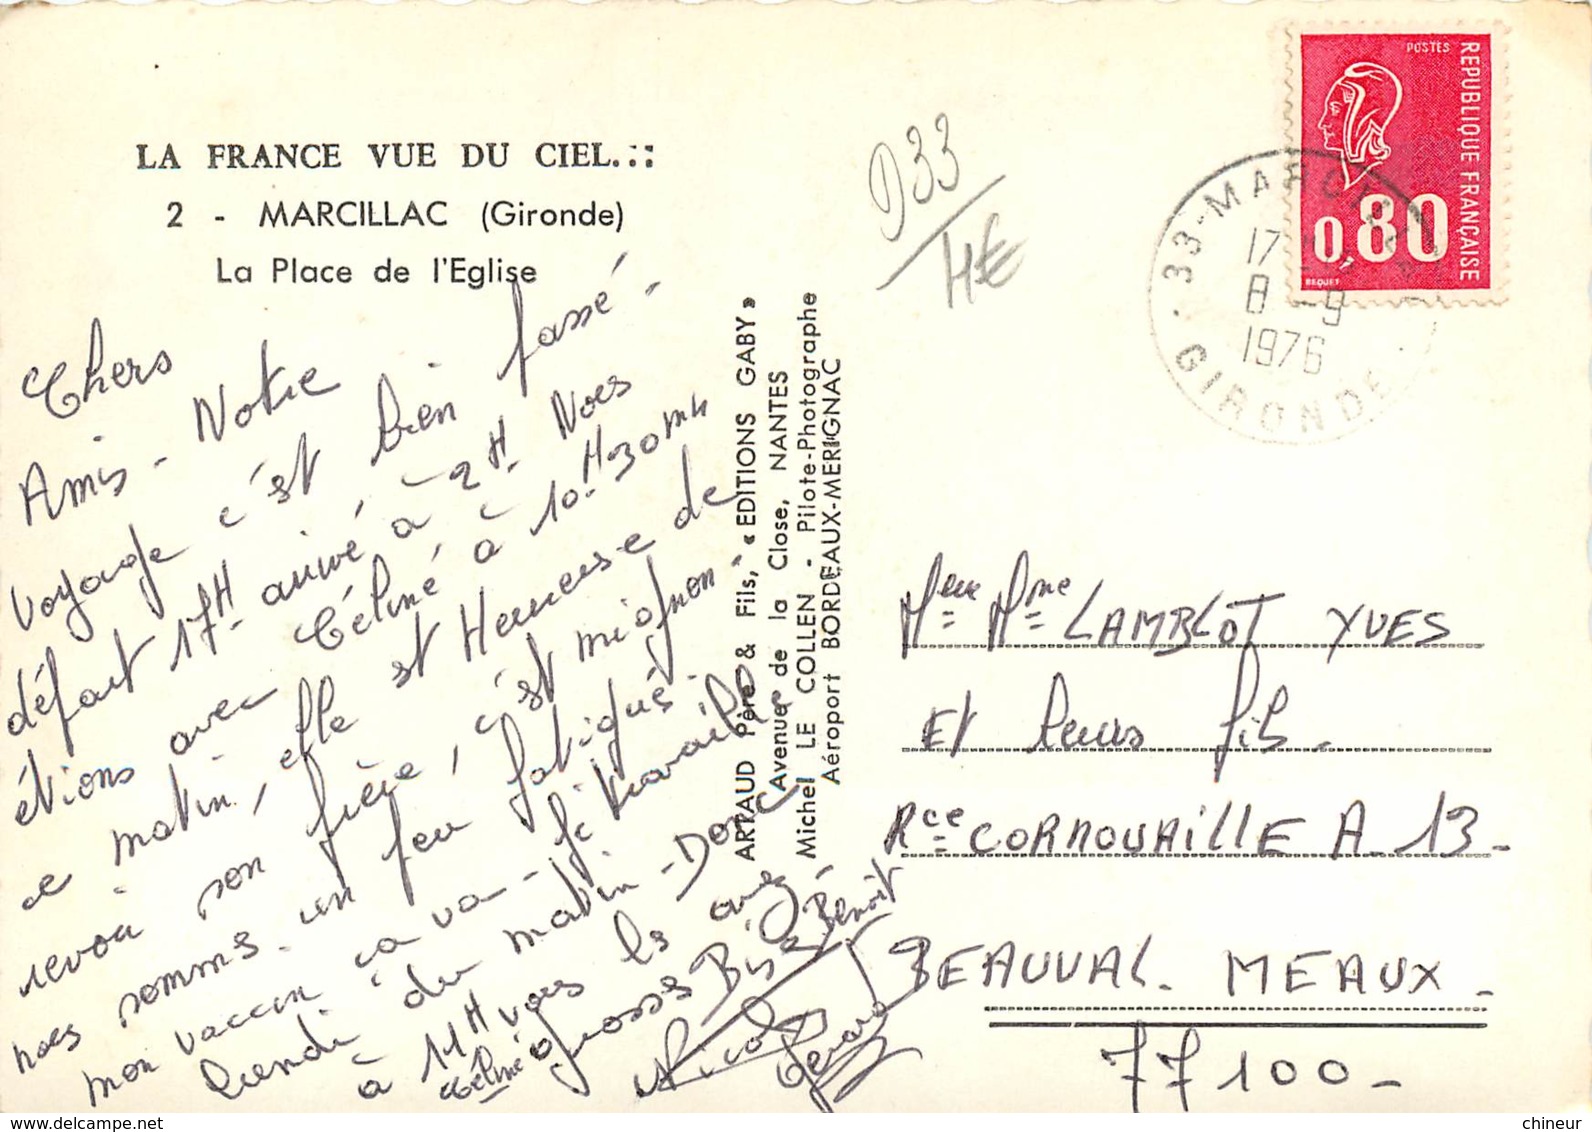 LA FRANCE VUE DU CIEL.::
2 - MARCILLAC (Gironde)
La Place de l'Eglise
Chers
Amis - Notre
voyage c'est bien passé -
départ 17H arrivé à 2H. Nous
étions avec Céliné à 10H30 mn
ce matin, elle est Heureuse de
revoir son frère, c'est mignon -
nous somms un peu fatigués -
mon vaccin ça va - je travaille
lundi du matin - Donc
à 14H vous les avez -
grosses Bises Benoit
Céliné Nicolas Gerard
ARTAUD Père & Fils, « EDITIONS GABY »
Avenue de la Close, NANTES
Michel LE COLLEN - Pilote-Photographe
Aéroport BORDEAUX-MERIGNAC
D33
4€
POSTES
REPUBLIQUE FRANÇAISE
0,80
BEQUET
33 - MARCILLAC
17 H
8 - 9
1976
GIRONDE
Meur Mme LAMBLOT YVES
Et leurs fils -
Rce CORNOUAILLE A 13 -
BEAUVAL - MEAUX -
77100 -
chineur